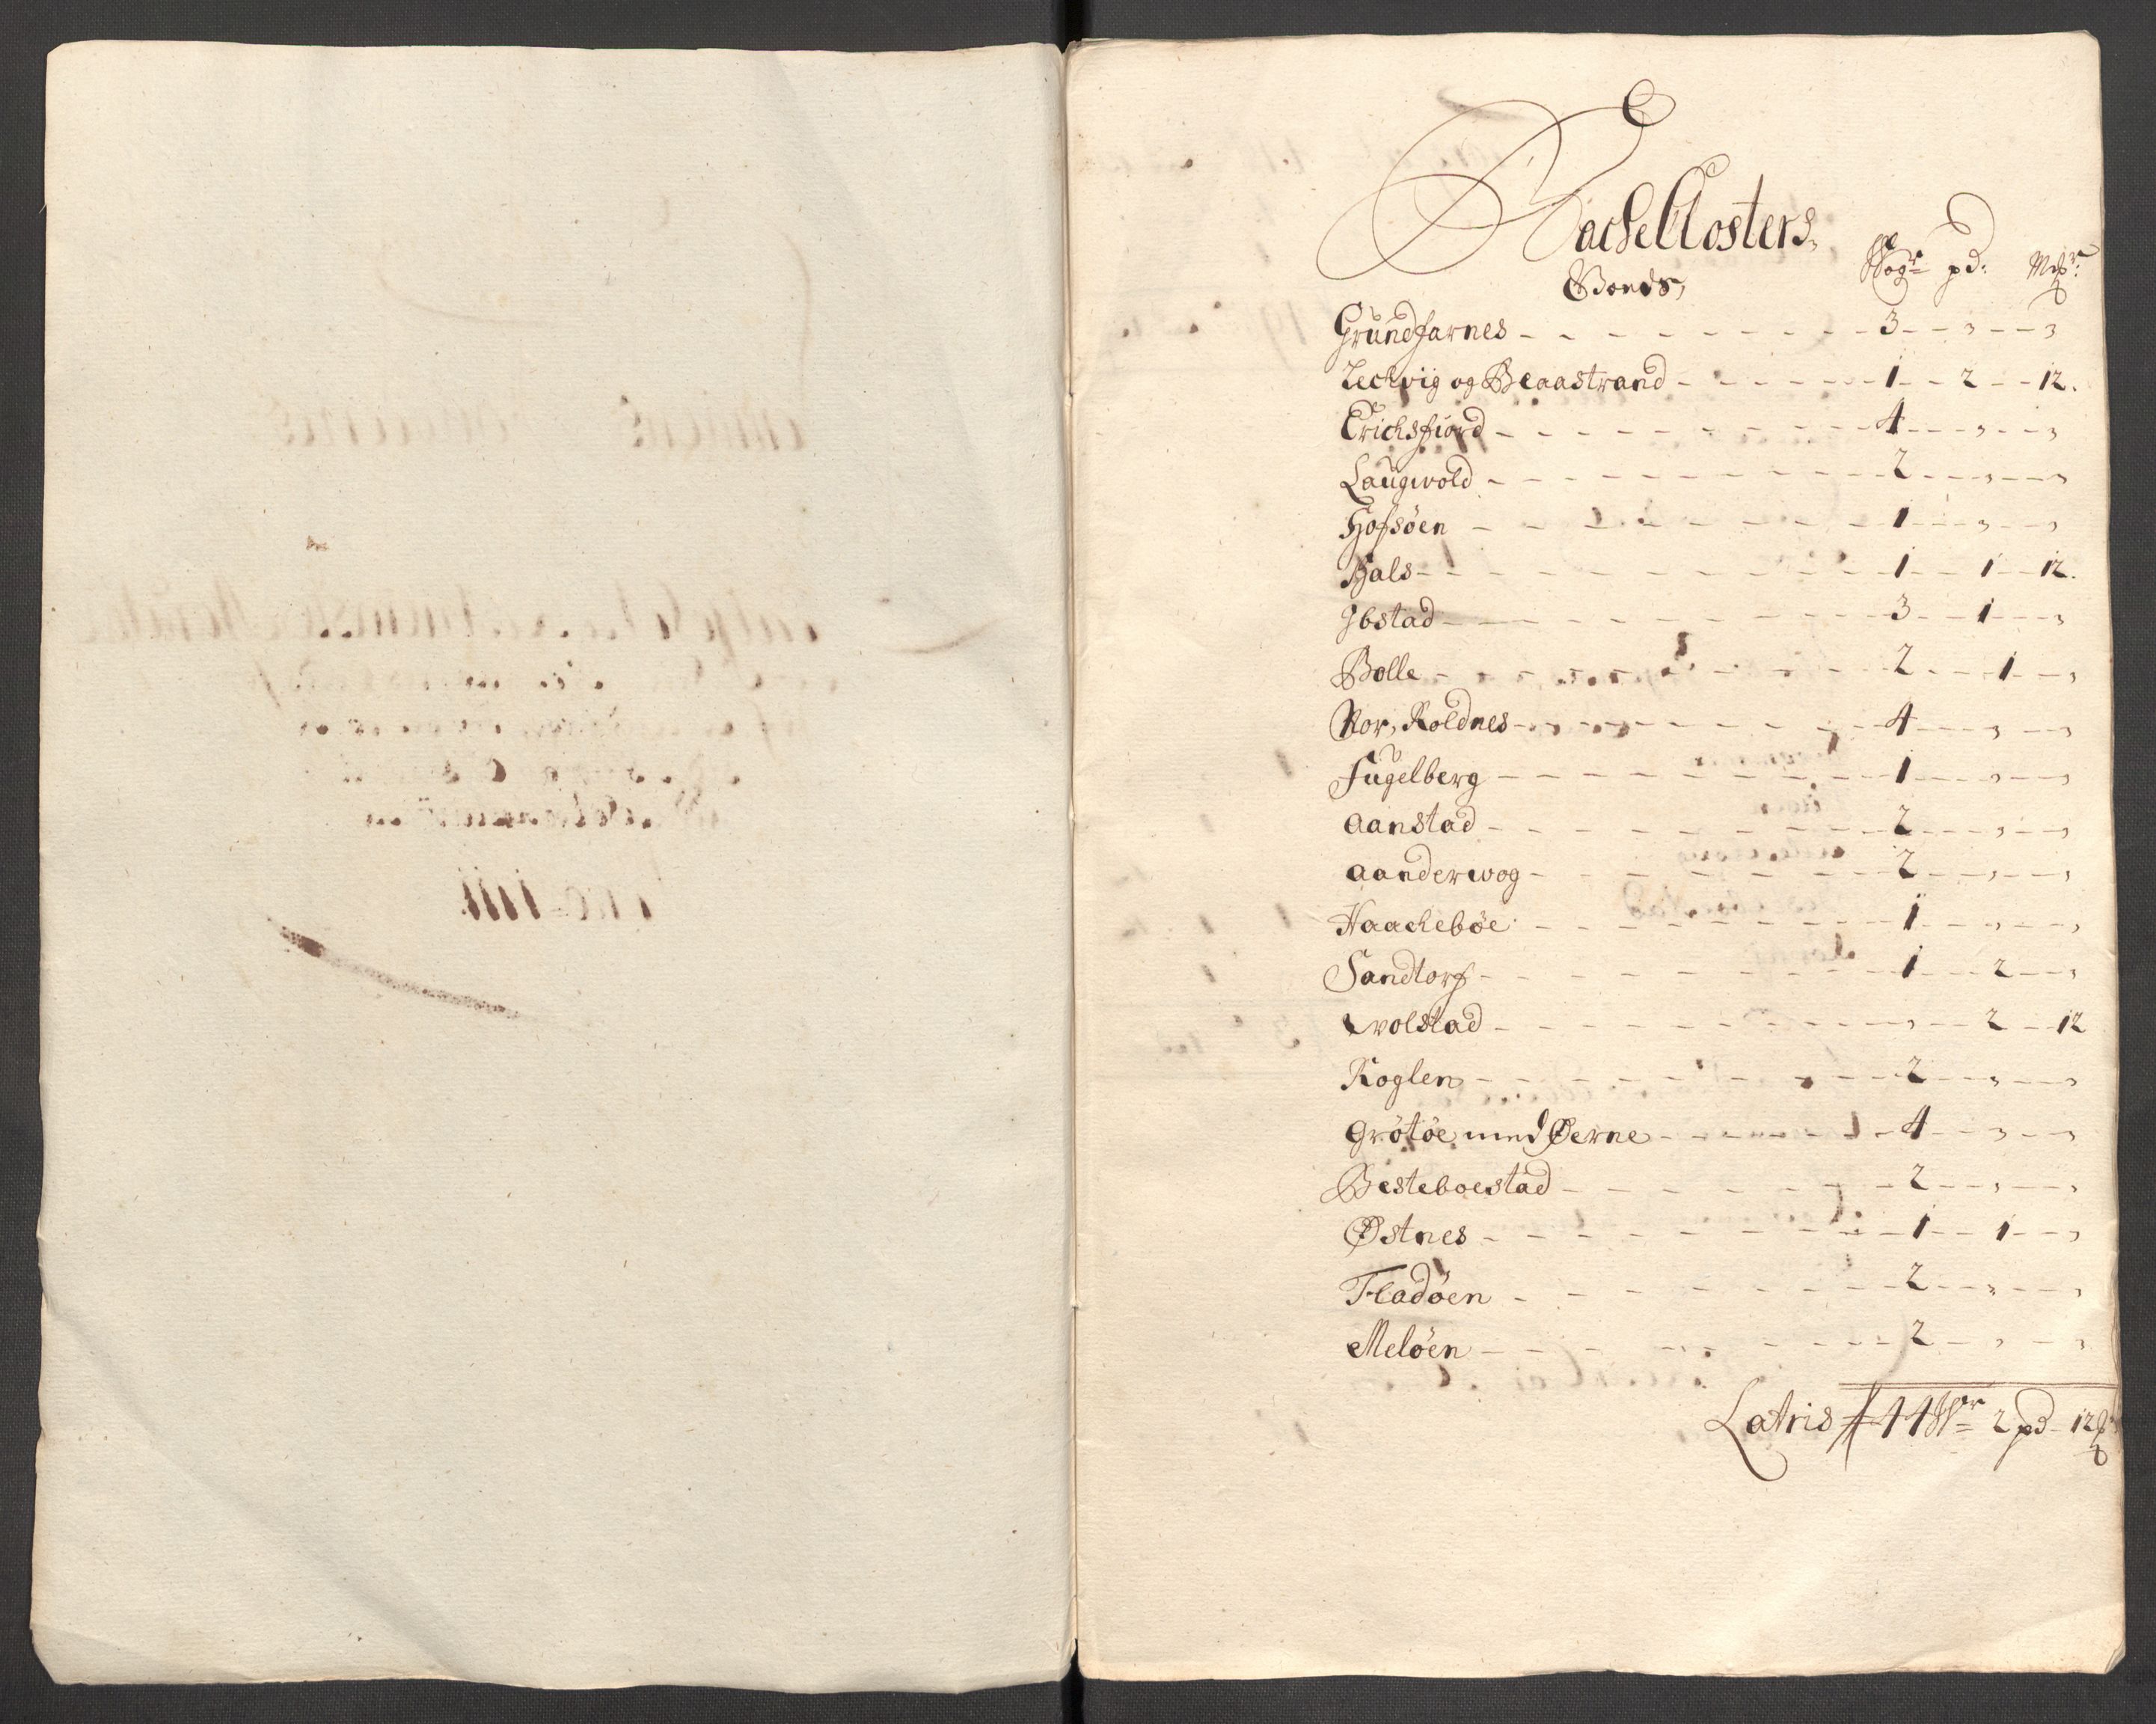 Bacheklosters
Bonds, Woger pd: Mkr:
Grundfarnes - 3 - , - ,
Lechvig og Beaastrand - 1 - 2 - 12.
Erichsfiord - 4 - , - ,
Laugwold - 2 - , - ,
Hofsøen - 1 - , - ,
Hals - 1 - 1 - 12.
Ibstad - 3 - 1 - ,
Bolle - 2 - 1 - ,
Nor, Roldnes - 4 - , - ,
Fugelberg - 1 - , - ,
Aanstad - 2 - , - ,
Aanderwog - 2 - , - ,
Haachebøe - 1 - , - ,
Sandtorf - 1 - 2 - ,
Evolstad - , - 2 - 12
Roglen - 2 - , - ,
Grøtøe med Øerne - 4 - , - ,
Besteboestad - 2 - , - ,
Østnes - 1 - 1 - ,
Fladøen - 2 - , - ,
Meløen - 2 - , - ,
Latris 44 Wr 2 pd 12